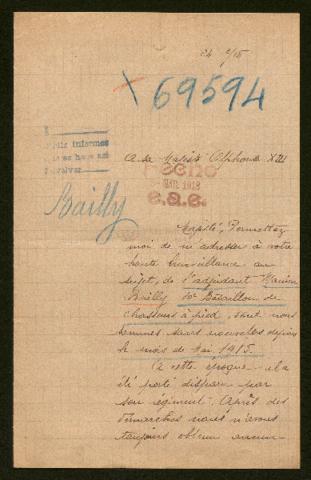 24
69594
Bailly
A sa Majesté Alphonse XIII
HECHO
1918
e.a.e.
Majesté, Permettez
moi de m'adresser à votre
haute bienveillance au
sujet, de l'adjudant
Bailly Bataillon de
chasseurs à pied, dont nous
sommes sans nouvelles depuis
le mois de Mai 1915.
A cette époque il a
été porté disparu par
son régiment. Après des
démarches nous n'avons
toujours obtenu aucun